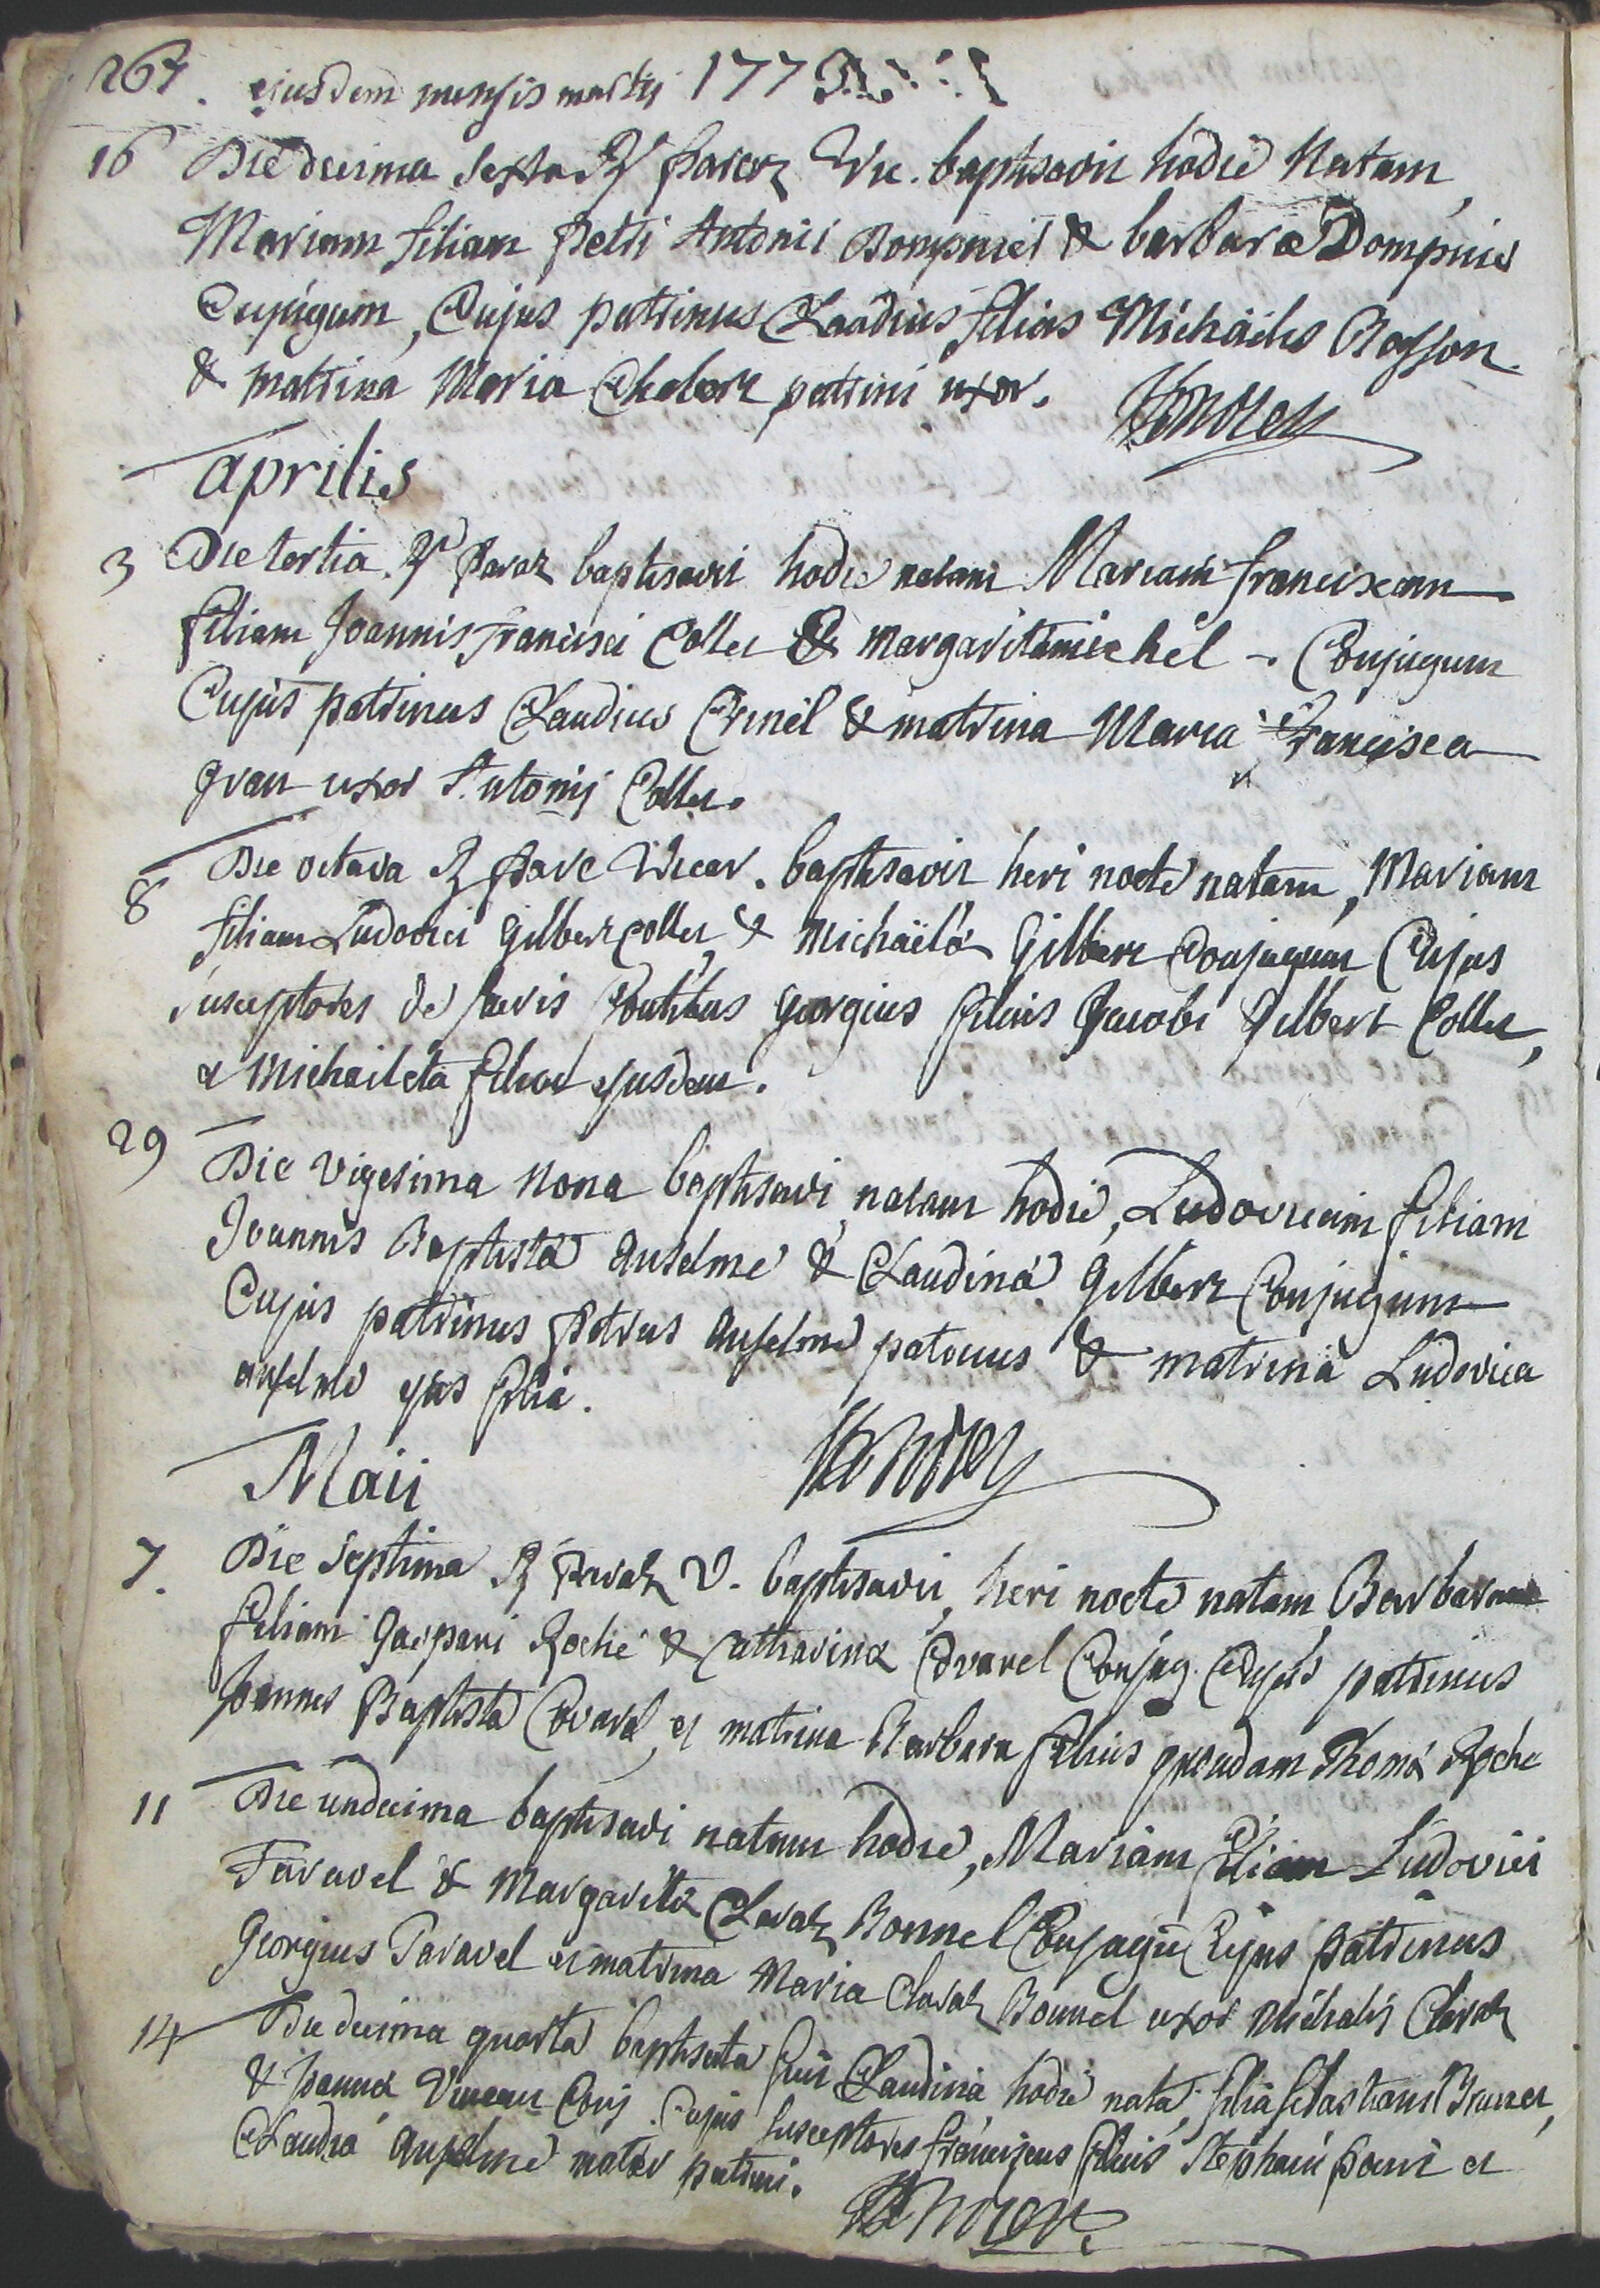 267. ejusdem mensis martij 1773
16 Die decima sexta Rd favoz Vic. baptisavit hodie Natam,
Mariam filiam petri Antonii Dompniet & barbaræ Dompniet
Conjugum, Cujus patrinus Claudius filius Michaëlis Rosson
& matrina Maria Chaberz patrini uxor.
Aprilis
3 Die tertia. Rd favoz baptisavit hodie natam Mariam franciscam
filiam Joannis francisci Collet & Margarita michel - Conjugum
Cujus patrinus Claudius Crinel & matrina Maria Francisca
gran uxor Antonij Collet.
8 Die octava R favz Vicar. baptisavit heri nocte natam, Mariam
filiam Ludovici gilbert collet, & Michaëlæ Gilbert Conjugum Cujus
susceptores de sacris fontibus georgius filius Jacobi gilbert Collet,
& Michaileta filia ejusdem.
29 Die vigesima nona baptisavi natam hodie, Ludovicam filiam
Joannis Baptistæ anselme & Claudinæ gilbert Conjugum
Cujus patrinus petrus anselme patruus & matrina Ludovica
anselme ejus filia.
Maii
7. Die septima R favoz V. baptisavit heri nocte natam Barbaram
filiam gaspari Roche & Catharinæ Covarel Conjug. Cujus patrinus
Joannes Baptista Covarel, et matrina Barbara filius quondam Thomæ Roche
11 Die undecima baptisavi natam hodie, Mariam filiam Ludovici
Taravel & Margaritæ Clavaz Bonnel Conjugum Cujus patrinus
Georgius Taravel et matrina Maria Clavaz Bonnel uxor Michaelis Clavaz
14 Die decima quarta baptisata fuit Claudina hodie nata, filia sebastiani Brunet,
& Joannæ Vincent Conj. Cujus susceptores franciscus filius Stephani favre et
Claudia anselme mater patrini.